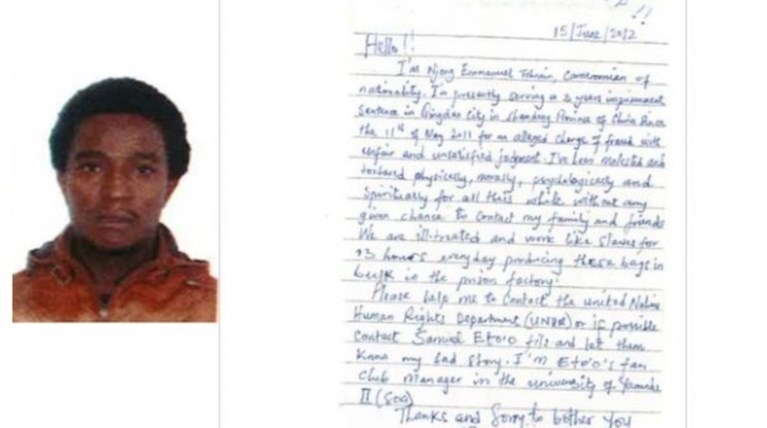 !!
15/June/2012
Hello!!
I'm Njong Emmanuel Tohnain, Cameroonian of
nationality. I'm presently serving a 3 years imprisonment
Sentence in Qingdao City in Shandong Province of China Since
the 11th of May 2011 for an alleged charge of fraud with
unfair and unsatisfied judgment. I've been molested and
tortured physically, morally, psychologically and
Spiritually for all this while without any
given chance to contact my family and friends
We are ill-treated and work like slaves for
13 hours everyday producing these bags in
bulk in the prison factory.
Please help me to contact the united Nations
Human Rights Department (UNHR) or if possible
contact Samuel Eto'o fils and let them
Know my Sad Story. I'm Eto'o's fan
Club Manager in the university of Yaounde
II (Soa)
Thanks and Sorry to bother you